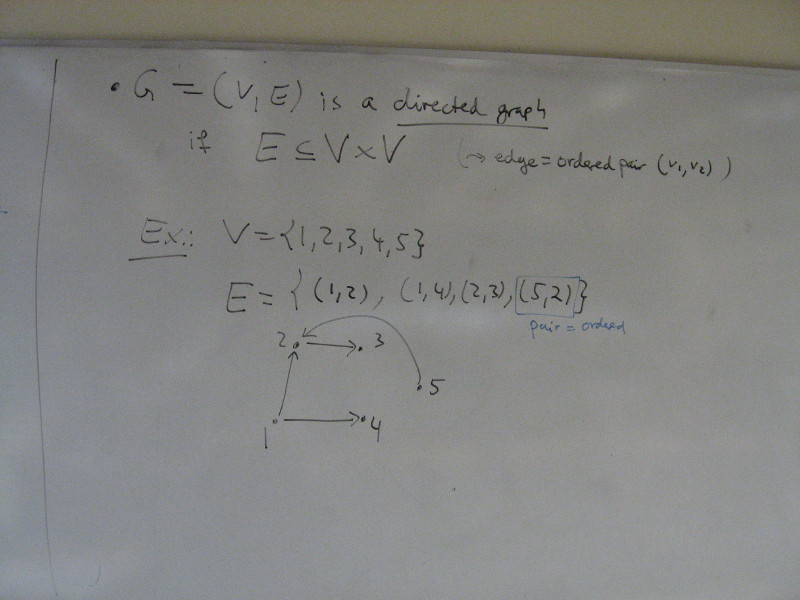 • G = (V, E) is a directed graph
if E ⊆ V × V (→ edge = ordered pair (v₁, v₂))
Ex.: V = {1, 2, 3, 4, 5}
E = { (1,2), (1,4), (2,3), (5,2) }
pair = ordered
2 3
5
1 4